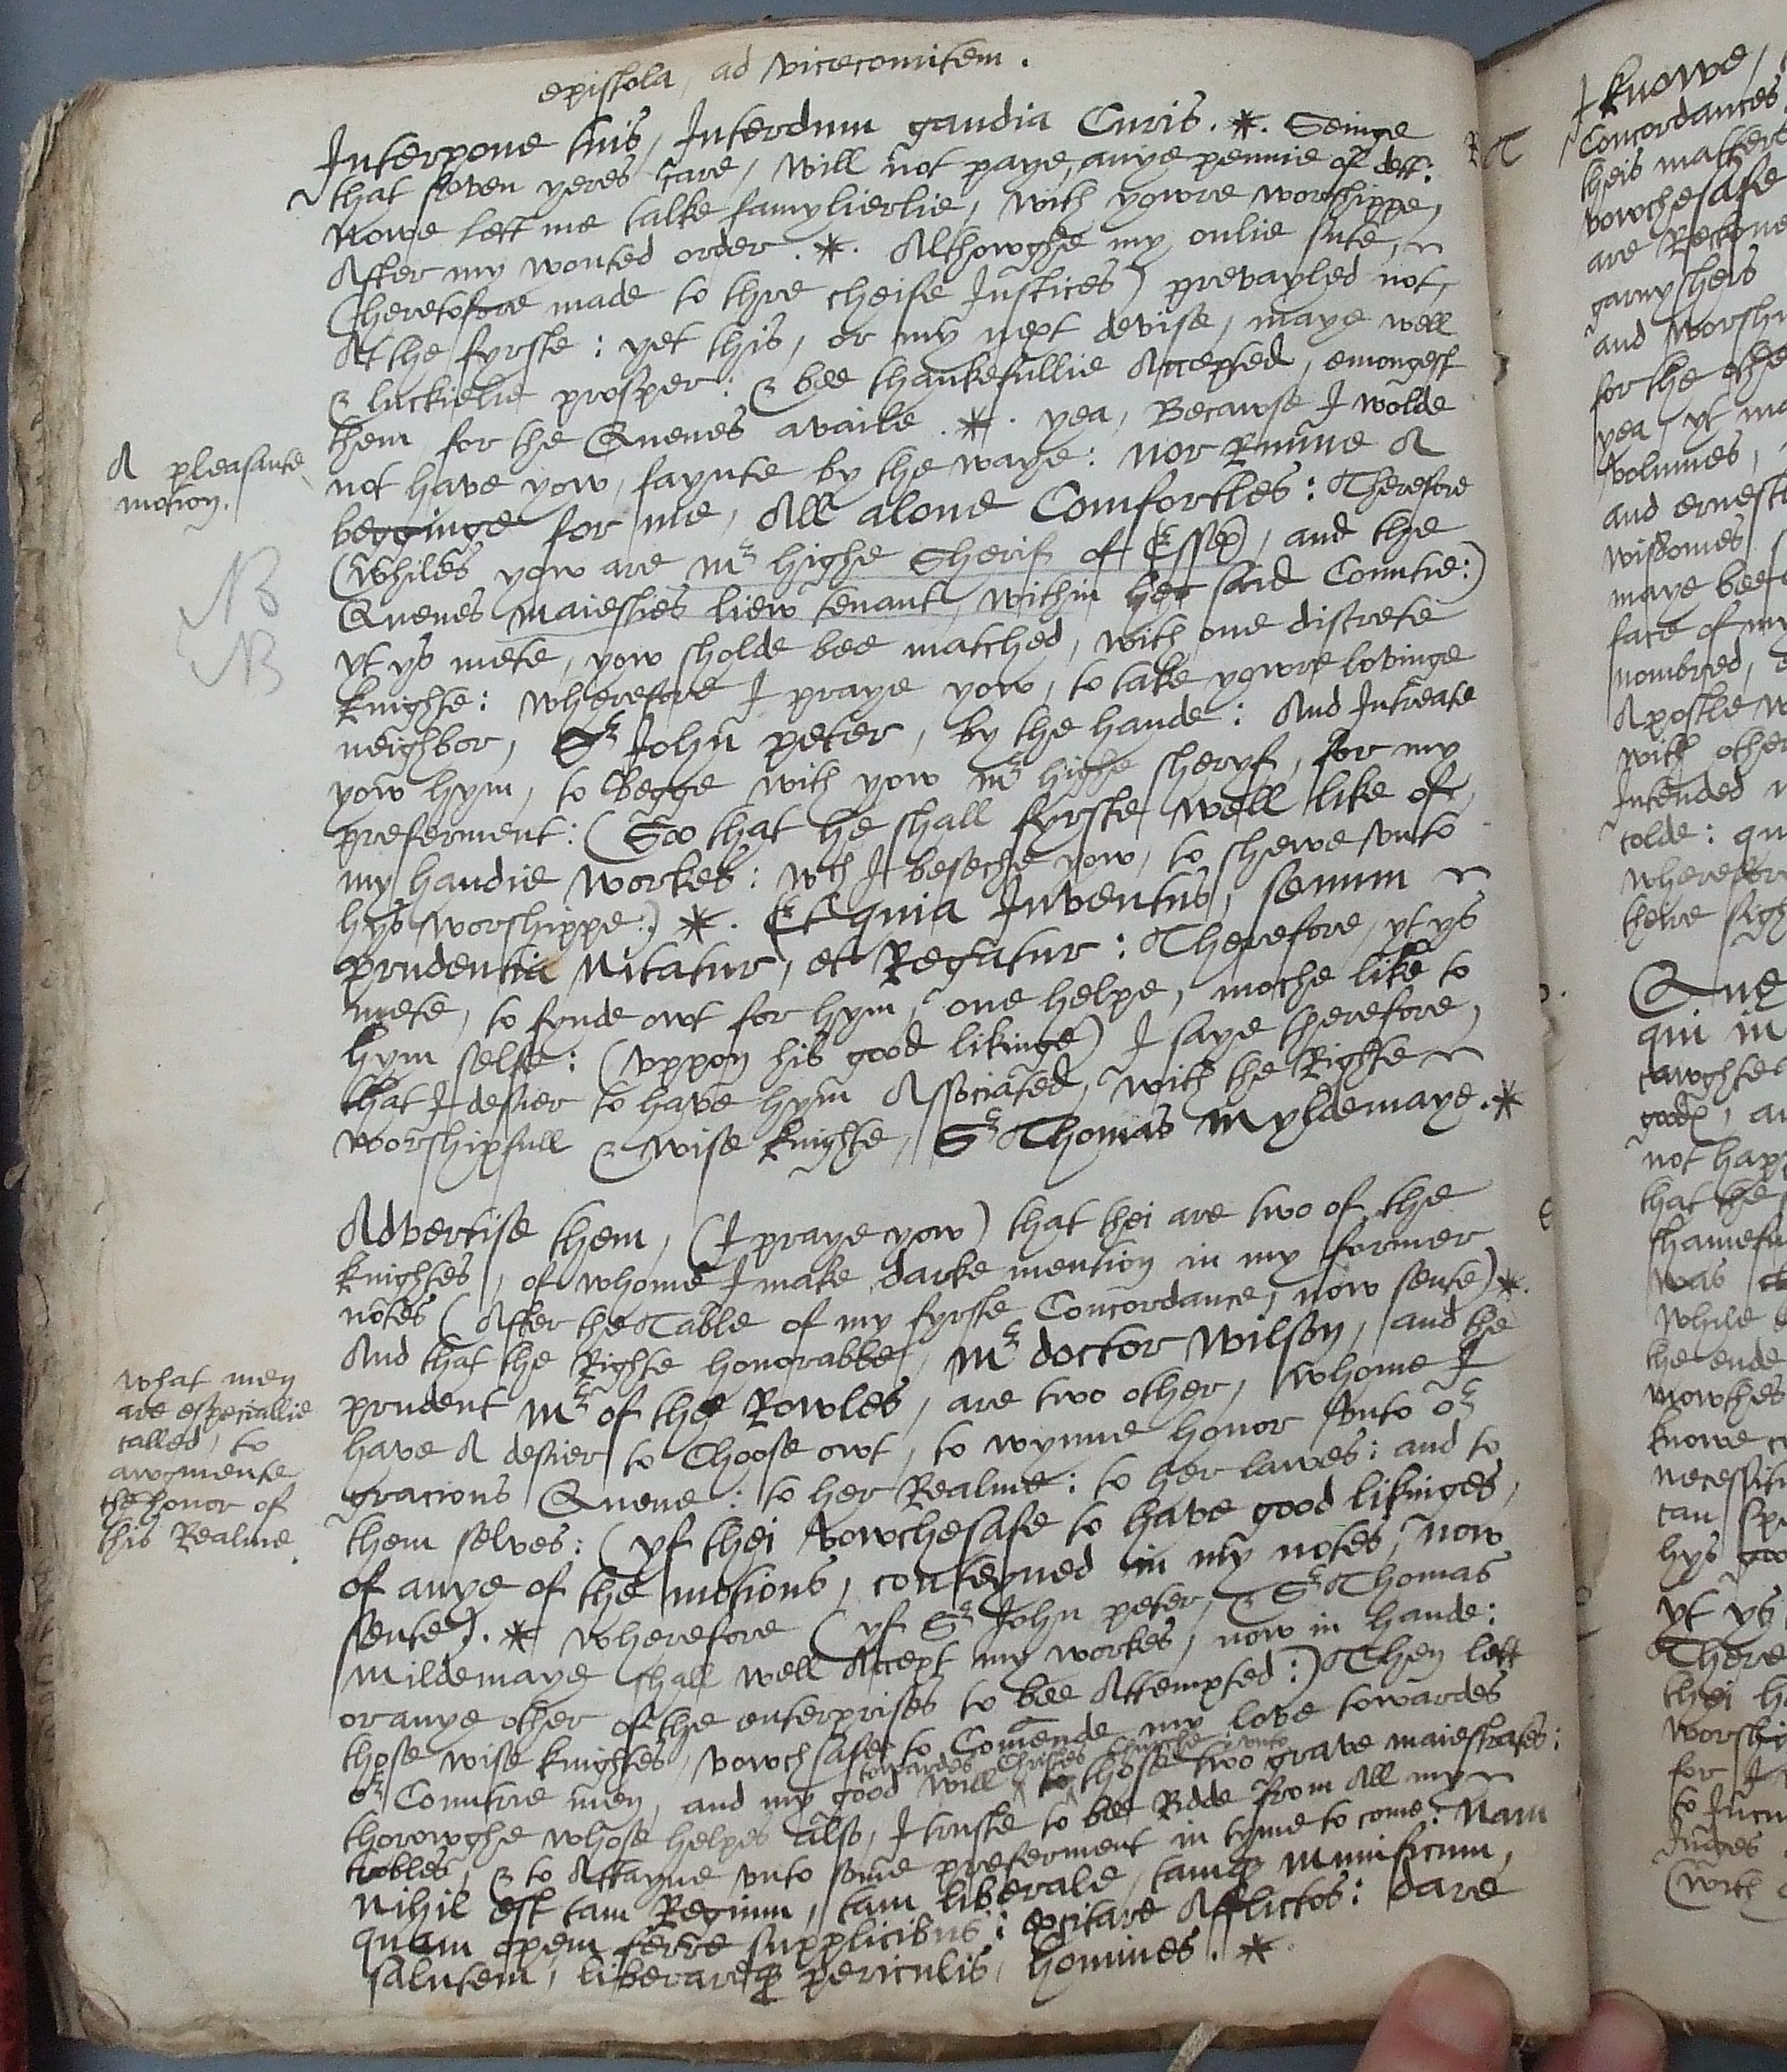 epistola, ad vicecomitem.
Interpone tuis, Interdum gaudia Curis. *. Seinge
that seven yeres care, will not paye, anye pennie of dett:
Nowe lett me talke famylierlie, with yowre worshippe,
After my wonted order. *. Althowghe my onlie sute,
(heretofore made to thre cheife Justices) prevayled not,
At the fyrste: yet this, or my next devise, maye well
& luckielie prosper: & bee thankefullie Accepted, emongest
them for the Quenes availe. *. yea, Becawse I wolde
not have yow, faynte by the waye: nor Runne A
begginge for me, All alone Comfortles: Therefore
(Whiles yow are Mr highe Sherif of Essex), and the
Quenes maiesties liew tenant, within her said Countie:)
yt ys mete, yow sholde bee matched, with one discrete
knighte: Wherefore I praye yow, to take yowre lovinge
neighbor, Sr John peter, by the hande: And Intreate
yow hym, to Begge with yow mr highe sheryf, for my
preferment: (Soo that he shall fyrste well like of
my handie workes: wch I beseche yow, to shewe vnto
hys worshippe:) *. Et quia Iuventus, senum
prudentia Nitatur, et Regatur: Therefore, yt ys
mete, to fynde owt for hym, one helpe, moche like to
hym selfe: (vppon his good likinge) I saye therefore,
that I desier to have hym Associated, with the Righte
worshipfull & wise knighte, Sr Thomas Myldemaye. *
Advertise them, (I praye yow) that thei are two of the
knightes, of whome I make darke mention in my former
notes (After the Table of my fyrste Concordance, now sente) *.
And that the Righte honorable, Mr doctor Wilson, and the
prudent Mr of the Rowles, are two other, whome I
have A desier to Choose owt, to wynne honor vnto or
gracious Quene: to her Realme: to her lawes: and to
them selves: (yf thei vowchesafe to have good likinges,
of anye of the motions, conteyned in my notes, now
sente). * Wherefore (yf Sr John peter, & Sr Thomas
Mildemaye shall well Accept my workes, now in hande:
or anye other of the enterprises to bee Attempted:) Then lett
those wise knightes, vowchsafe to Comende my love towardes
towardes Christes Churche: & vnto
or Countrie men, and my good will ^ to ^ those two grave maiestrates:
thorowghe whose helpes also, I truste to bee Ridde from All my
trobles, & to Attayne vnto some preferment in tyme to come: Nam
Nihil est tam Regium, tam liberale, tamq munificum,
quam opem ferre supplicibus: excitare Afflictos: dare
salutem, liberareq periculis, homines. *.
A pleasante
motion.
NB
NB
What men
are especiallie
called, to
awgmente
the honor of
this Realme.
I knowe,
Concordances
theis matters
vowchesafe
are Reckone
garnyshers
and worshi
for the othe
yea, yt ma
volumes,
and erneste
wisdomes
maye bee
face of my
nombred,
Apostle w
with other
Intended
tolde: qu
wherefore
theire sigh
Que
qui in
tawghte
not happ
that the
shamefu
was
While
the ende
mowthes
knowe
necessiti
can spe
hys goo
yt ys
There
thei h
worshi
for I
to Incu
Judges
(with